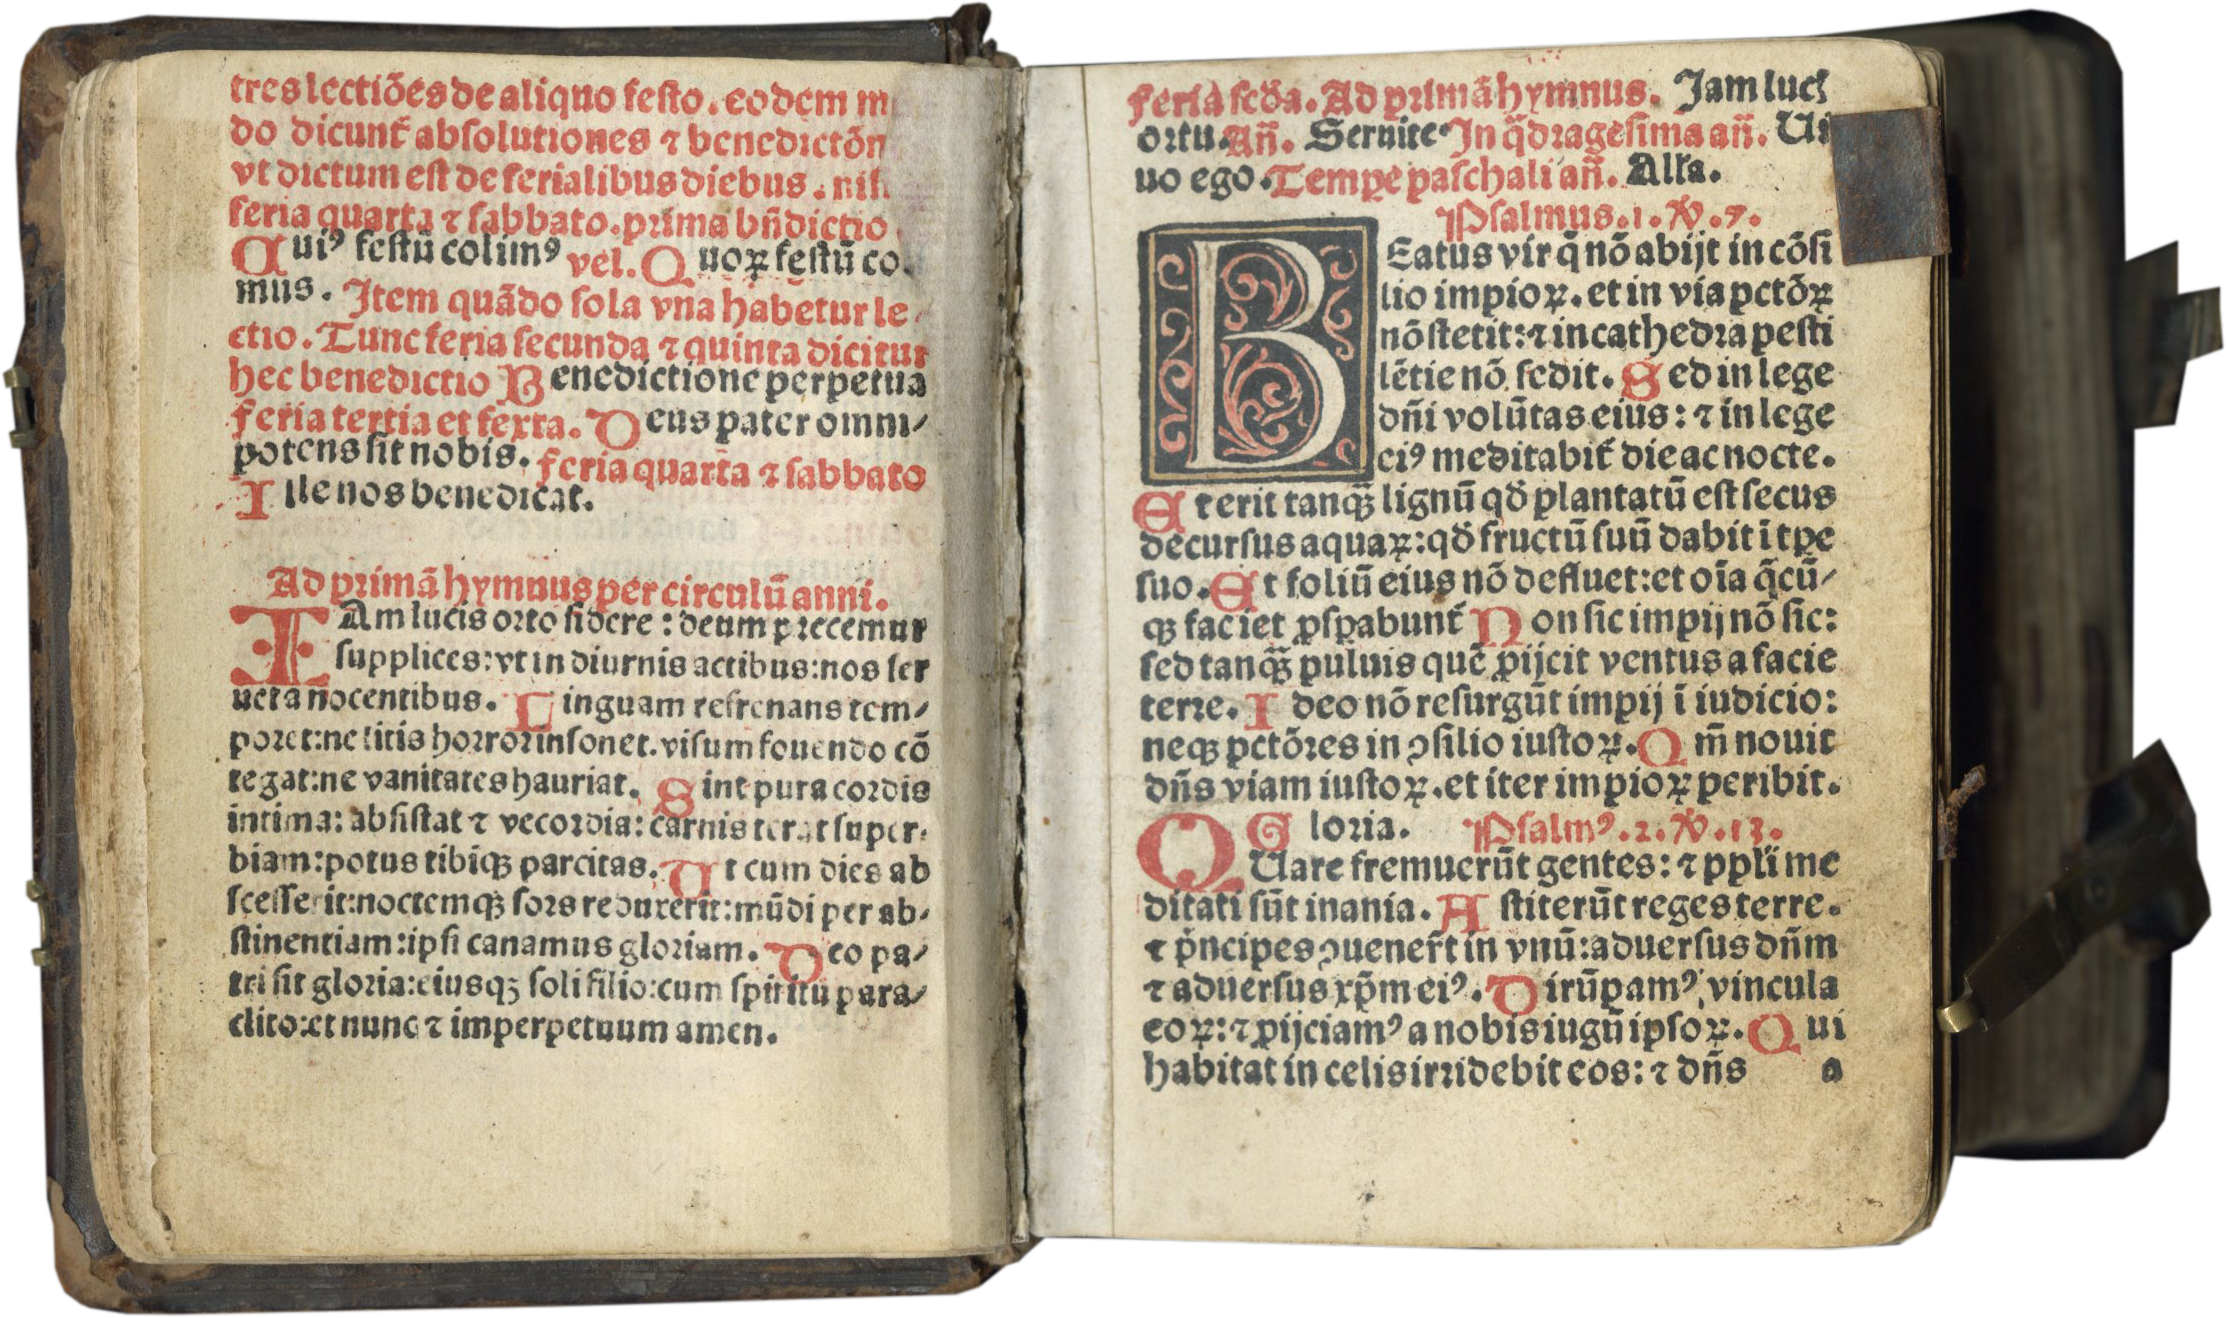 tres lectiões de aliquo festo. eodem m
do dicunt᷑ absolutiones ⁊ benedictõn
vt dictum est de ferialibus diebus. nisi
feria quarta ⁊ sabbato. prima bñdictio
Cuiꝰ festũ colimꝰ vel. Quoꝝ festũ co
mus. Item quãdo sola vna habetur le
ctio. Tunc feria secunda ⁊ quinta dicitur
hec benedictio Benedictione perpetua
feria tertia et sexta. Deus pater omni⸗
potens sit nobis. feria quarta ⁊ sabbato
Ille nos benedicat.
Ad primã hymnus per circulũ anni.
IAm lucis orto sidere: deum precemur
supplices: vt in diurnis actibus: nos ser
uet a nocentibus. Linguam refrenans tem⸗
peret: ne litis horror insonet. visum fouendo cõ
tegat: ne vanitates hauriat. Sint pura cordis
intima: absistat ⁊ vecordia: carnis terat super⸗
biam: potus cibiqꝫ parcitas. Ut cum dies ab
scesserit: noctemqꝫ sors reduxerit: mũdi per ab⸗
stinentiam: ipsi canamus gloriam. Deo pa⸗
tri sit gloria: eiusqꝫ soli filio: cum spiritu para⸗
clito: et nunc ⁊ imperpetuum amen.
feria scđa. Ad primã hymnus. Jam luci
ortu. Añ. Seruite In q̃dragesima añ. Ui
uo ego. Tempe paschali añ. Alla.
Psalmus. 1. ꝟ. 7.
BEatus vir q̃ nõ abijt in cõsi
lio impioꝝ. et in via pctõꝝ
nõ stetit: ⁊ in cathedra pesti
lẽtie nõ sedit. Sed in lege
dñi volũtas eius: ⁊ in lege
eiꝰ meditabit᷑ die ac nocte.
Et erit tanqꝫ̃ lignũ qđ plantatũ est secus
decursus aquaꝝ: qđ fructũ suũ dabit ĩ tꝑe
suo. Et foliũ eius nõ defluet: et oĩa q̃cũ⸗
qꝫ faciet ꝓsꝑabunt᷑ Non sic impij nõ sic:
sed tanqꝫ̃ puluis quẽ ꝓijcit ventus a facie
terre. Ideo nõ resurgũt impij ĩ iudicio:
neqꝫ pctõres in ꝯsilio iustoꝝ. Qm̃ nouit
dñs viam iustoꝝ. et iter impioꝝ peribit.
Gloria. Psalmꝰ. 2. ꝟ. 13.
QUare fremuerũt gentes: ⁊ ppłi me
ditati sũt inania. Astiterũt reges terre.
⁊ pͥncipes ꝯuener̃t in vnũ: aduersus dñm
⁊ aduersus xp̃m eiꝰ. Dirũpamꝰ vincula
eoꝝ: ⁊ ꝓijciamꝰ a nobis iugũ ipsoꝝ. Qui
habitat in celis irridebit eos: ⁊ dñs a